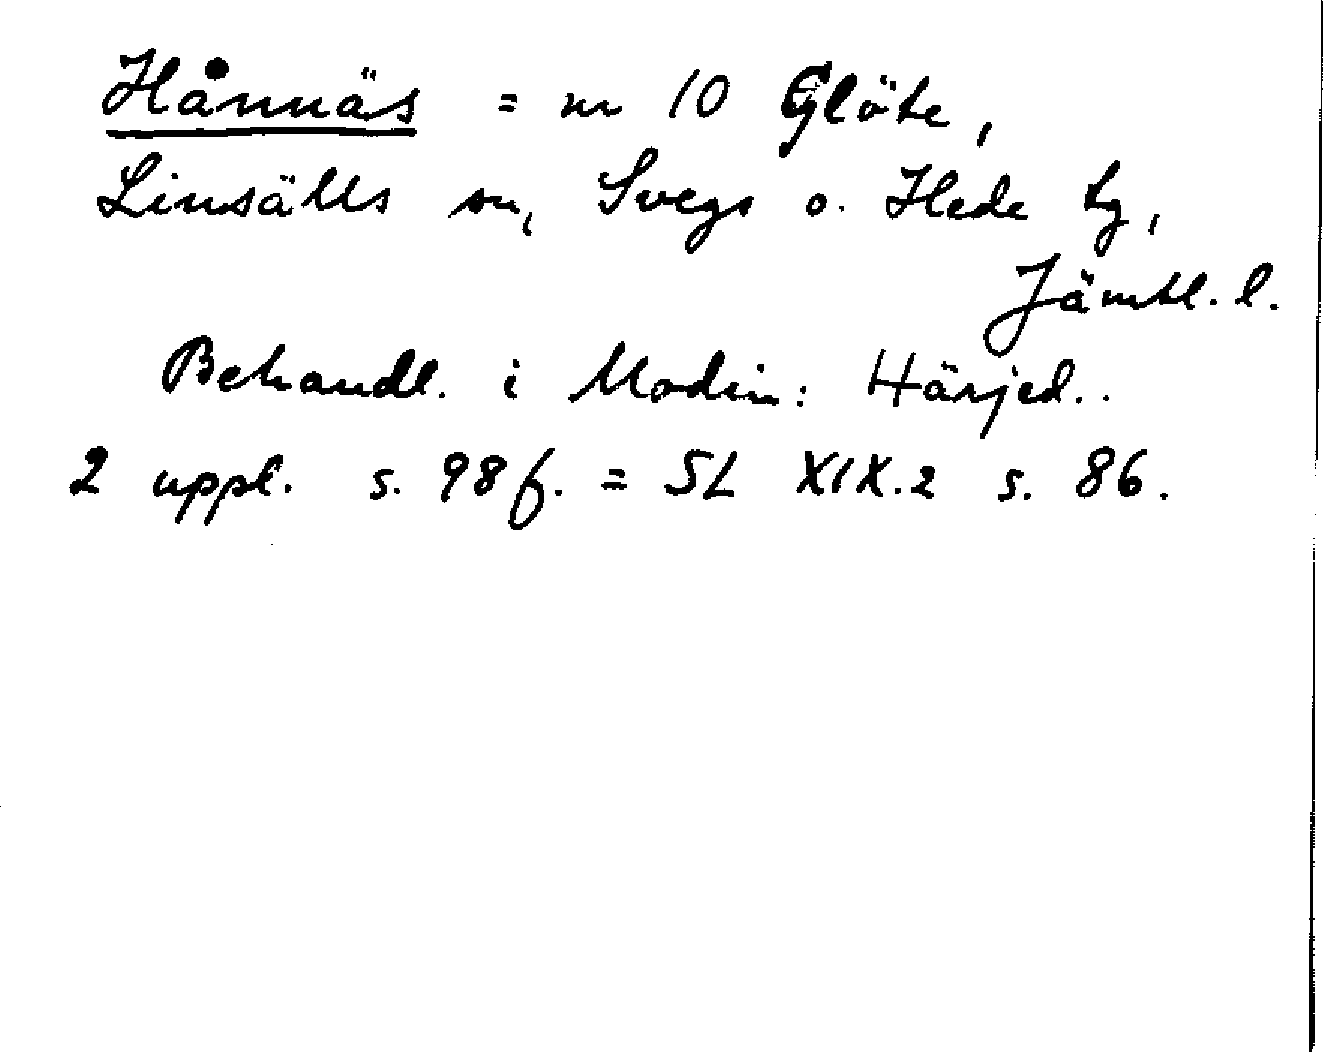 Hånnäs = nr 10 Glöte,
Linsälls sn, Svegs o. Hede tg,
Jämtl. l.
Behandl. i Modin: Härjed..
2 uppl. s. 98 f. = SL XIX.2 s. 86.